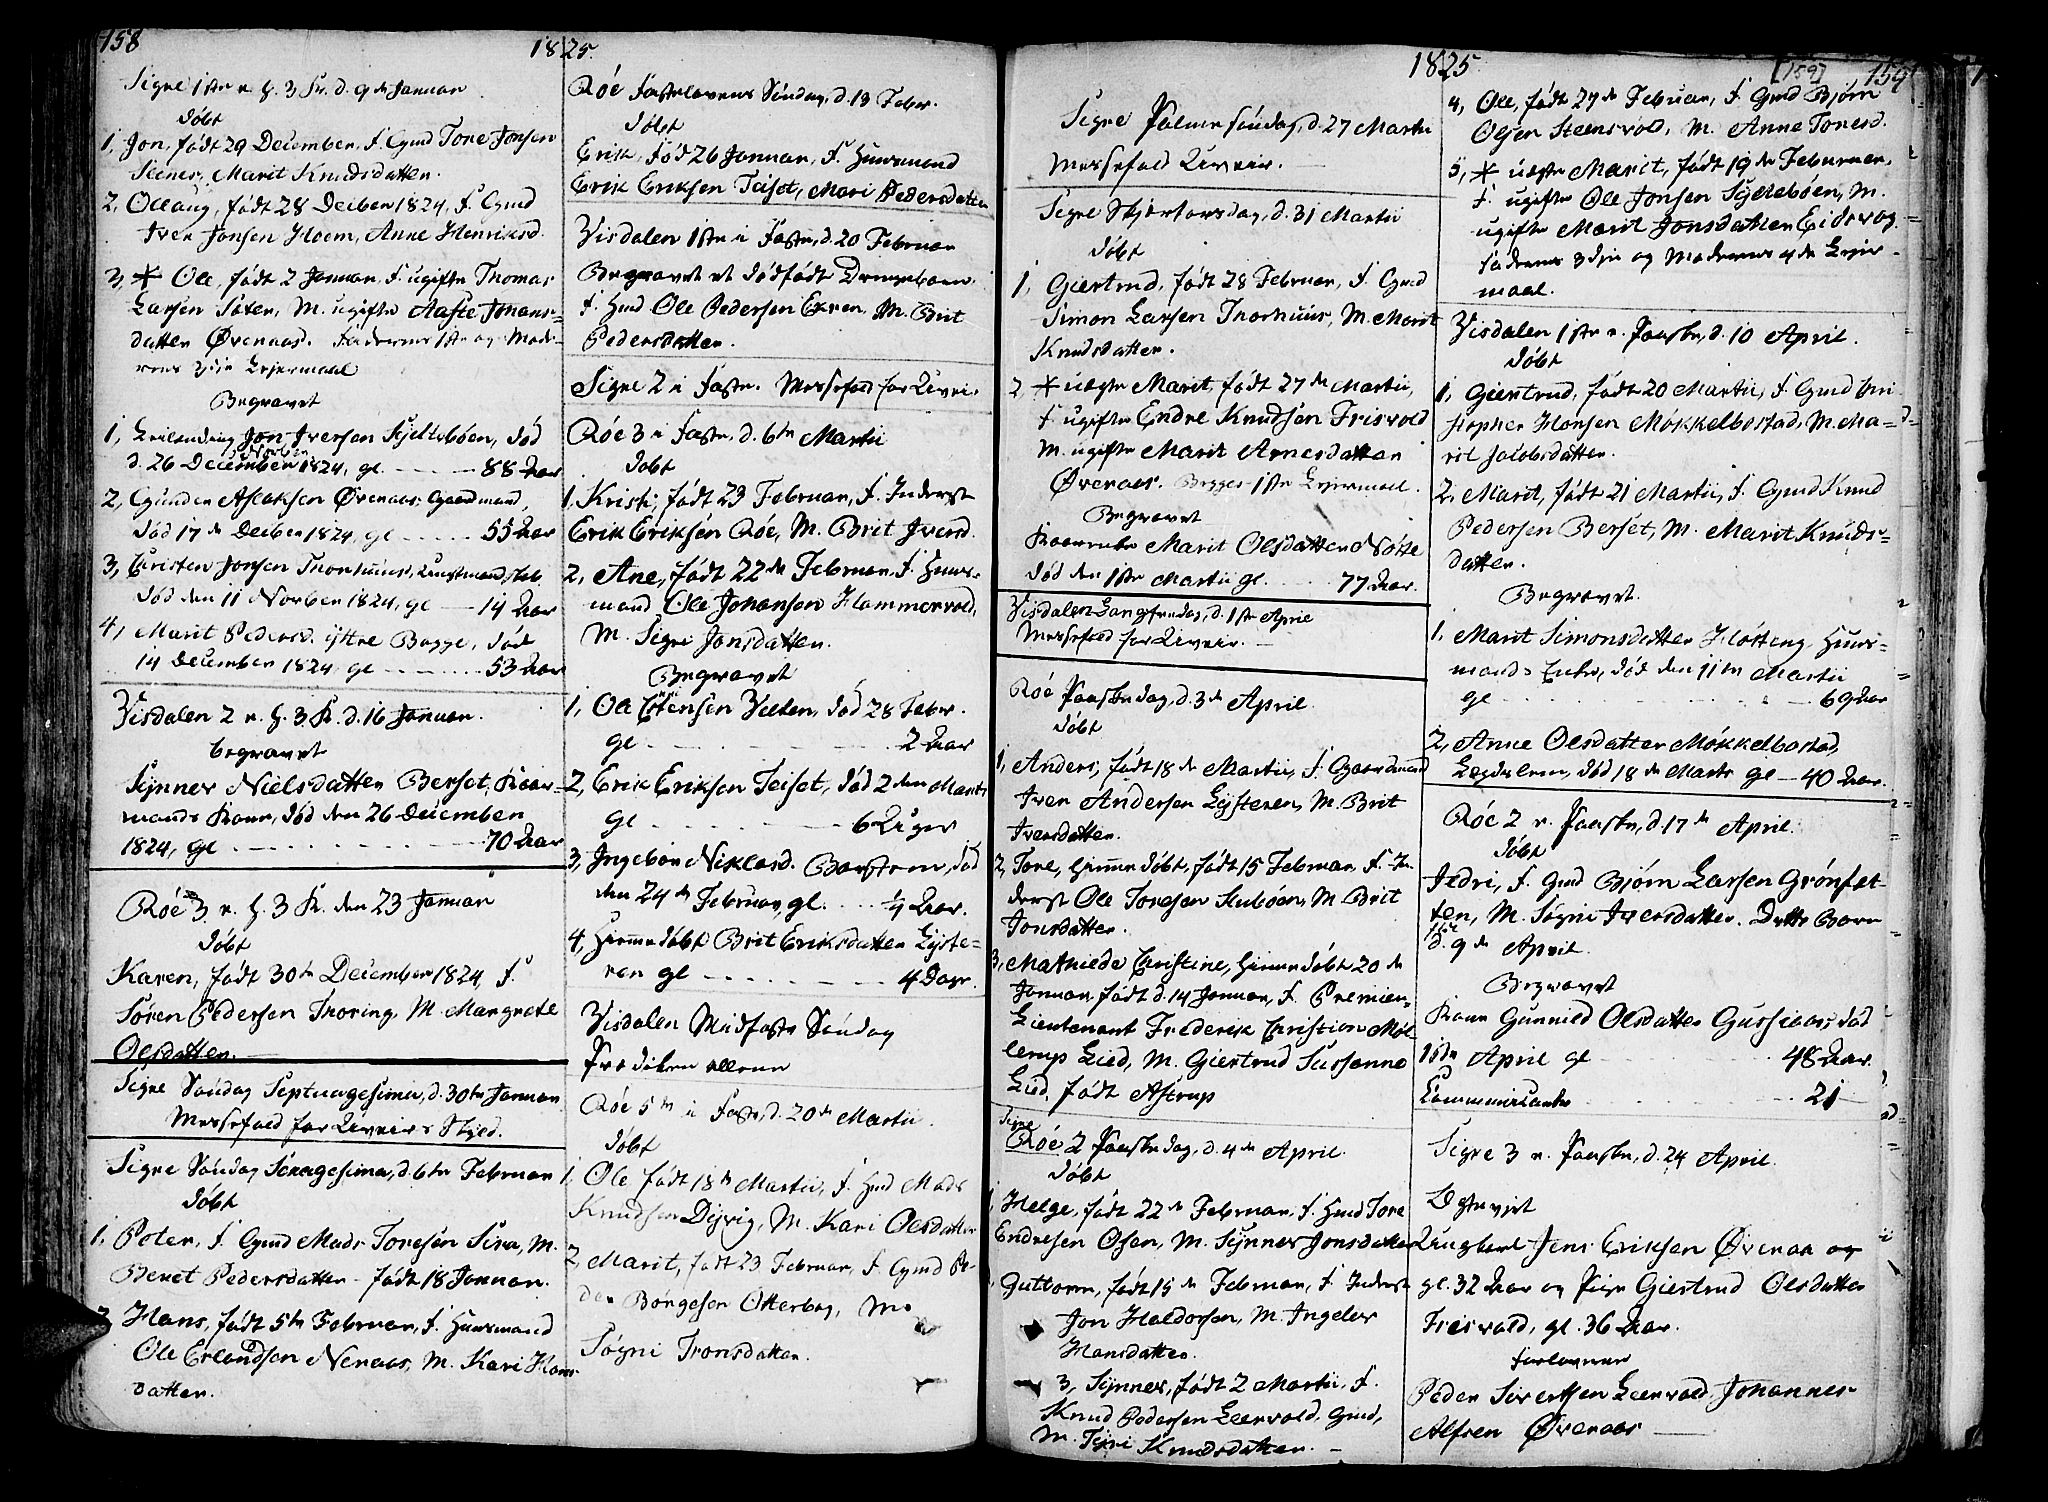 158
1825.
Signe 1ste e. h. 3 K. d. 9de Januar
Døbt
1, Jon, født 29 December, F. Gmd Tore Jonsen
Marit Knudsdatten.
2, Ollaug, født 28 Decber 1824, F. Gmd
Iver Jonsen Hoem, Anne Henriksd.
3, * Ole, født 2 Januar, F. ugifte Thomas
Larsen M. ugifte Aaste Jonas-
datten Øvenaas. Faderens 1ste og Mode-
rens 3die Lejermaal
Begravet
1, Jon Iversen Sysltebøen, død
d. 26 December 1824, gl - - - 88 Aar
2, Gunder Aslaksen Øvenaas, Gaardmand,
død 17de Decber 1824, gl - - - 55 Aar
3, Christen Jonsen Thorhuus,
død den 11 Novber 1824, gl - - 14 Aar
4, Marit Pedersd. yttre Bugge, død
14 December 1824, gl - - - 53 Aar
Visdalen 2 e. h. 3 K. d. 16 Januar.
begravet
Synnev Nielsdatten Berset, Kaar-
mands Kone, død den 26 December
1824, gl - - - 70 Aar
Røe 3 e. h. 3 K. den 23 Januar
Døbt
Karen, født 30te December 1824, F.
Søren Pedersen Troring, M. Margrete
Olsdatten.
Signe Søndag Septuagesima, d. 30te Januar
Messefald for Uveirs Skyld.
Signe Søndag Sexagesima, d. 6te Februar
Døbt
1, Peter, F. Gmd Mads Toresen Sira, M.
Beret Pedersdatten - født 18 Januar.
2, Hans, født 5te Februar, F. Huusmand
Ole Erlandsen Nenaas, M. Kari Hans-
datten.
Røe Fastelavens Søndag, d. 13 Febr.
Døbt
Erik, fød 26 Januar, F. Huusmand
Erik Eriksen Teiset, Mari Pedersdatten
Visdalen 1ste i Faste, d. 20 Februar
Begravet et dødfødt Drengebarn.
F. Hmd Ole Pedersen M. Brit
Pedersdatten.
Signe 2 i Faste. Messefald for Uveir.
Røe 3 i Faste, d. 6te Martii
Døbt
1, Kristi, født 23 Februar, F. Inderst
Erik Eriksen Røe, M. Brit Iversd.
2, Ane, født 22de Februar, F. Huus-
mand Ole Johansen Hammervold,
M. Signe Jonsdatten.
Begravet
1, Ole Veeten, død 28 Febr.
gl - - - 2 Aar
2, Erik Eriksen Teiset, død 2den Marts
gl - - - 6 Uger
3, Ingebor Niklasd. død
den 24de Februar, gl. - - ¼ Aar.
4, Hjemmedøbt Brit Eriksdatten Lyste-
ren gl - - - 4 Dage.
Visdalen Midfaste Søndag
Prædiken allene
Røe 5te i Faste, d. 20de Martii.
Døbt
1, Ole født 18de Martii, F. Hmd Mads
Knudsen Digvig, M. Kari Olsdatten
2, Marit, født 23 Februar, F. Gmd Pe-
der Børgesen Otterbog, M.
Søgni Tronsdatten.
1825
[159] 159
Signe Palmesøndag, d. 27 Martii
Messefald Uveir. -
Signe Skjertorsdag, d. 31 Martii
Døbt
1, Giertrud, født 28 Februar, F. Gmd
Simon Larsen Thorhuus, M. Marit
Knudsdatten.
2, * uægte Marit, født 27de Martii,
F. ugifte Endre Knudsen Frisvold
M. ugifte Marit Arnesdatten
Øvenaas. Begges 1ste Lejermaal.
Begravet
Kaarenke Marit Olsdatten Nøste
død den 1ste Martii gl. - - 77 Aar.
Visdalen Langfredag, d. 1ste April
Messefald for Uveir. -
Røe Paaskedag, d. 3de April
Døbt
1, Anders, født 18de Martii, F. Gaardmand
Iver Andersen Lysteren, M. Brit
Iversdatten.
2, Tore, hjemmedøbt, født 15 Februar, F. In-
derst Ole Toresen Stubøen, M. Brit
Jonsdatten.
3, Mathilde Christine, hjemmedøbt 20de
Januar, født d. 14 Januar, F. Premier-
Lieutenant Frederik Christian Møl-
lerup Lied, M. Giertrud Sussanne
Lied, født Astrup
Signe
Røe 2 Paaskedag, d. 4de April.
Døbt
1, Helge, født 22de Februar, F. Hmd Tore
Endresen Osen, M. Synnev Jonsdatten
Guttorm, født 15de Februar, F. Inderst
Jon Haldorsen, M. Ingelev
Hansdatten.
3, Synnev, født 2 Martii, F.
Knud Pedersen Leervold, Gmd,
M. Tyri Knudsdatten. -
4, Ole, født 27de Februar, F. Gmd Bjørn
Olsen Steensvold, M. Anne Toresd.
5, * uægte Marit, født 19de Februar,
F. ugifte Ole Jonsen Syltebøen, M.
ugifte Marit Jonsdatten Eidsvog.
Faderens 3die og Moderens 4de Lejer-
maal.
Visdalen 1ste e. Paaske, d. 10 April.
Døbt
1, Giertrud, født 20 Martii, F. Gmd Chri
stopher Hansen Møkkelbostad, M. Ma-
rit Jakobsdatten.
2, Marit, født 21 Martii, F. Gmd Knud
Pedersen Berset, M. Marit Knuds-
datten.
Begravet.
1, Marit Simonsdatten Huus-
mands Enke, død den 11te Martii
gl - - - 69 Aar
2, Anne Olsdatten Møkkelbostad,
Lægdslem, død 18de Marts gl - 40 Aar.
Røe 2 e. Paaske, d. 17de April.
Døbt
Sedri, F. Gmd Bjørn Larsen Grønset-
ten, M. Søgni Iversdatten. Dette Barn
d. 9de April.
Begravet
Kone Gunnild Olsdatten Gussiaas, død
1ste April gl - - - 48 Aar.
Communicanter - - - 21
Signe 3 e. Paaske, d. 24 April.
Egteviet
Ungkarl Jens Eriksen Øvenaa og
gl. 32 Aar og Pige Giertrud Olsdatten
Frisvold, gl. 36 Aar.
Forlovere
Peder Sivertsen Leervold, Johannes
Alfsen Øvenaas -